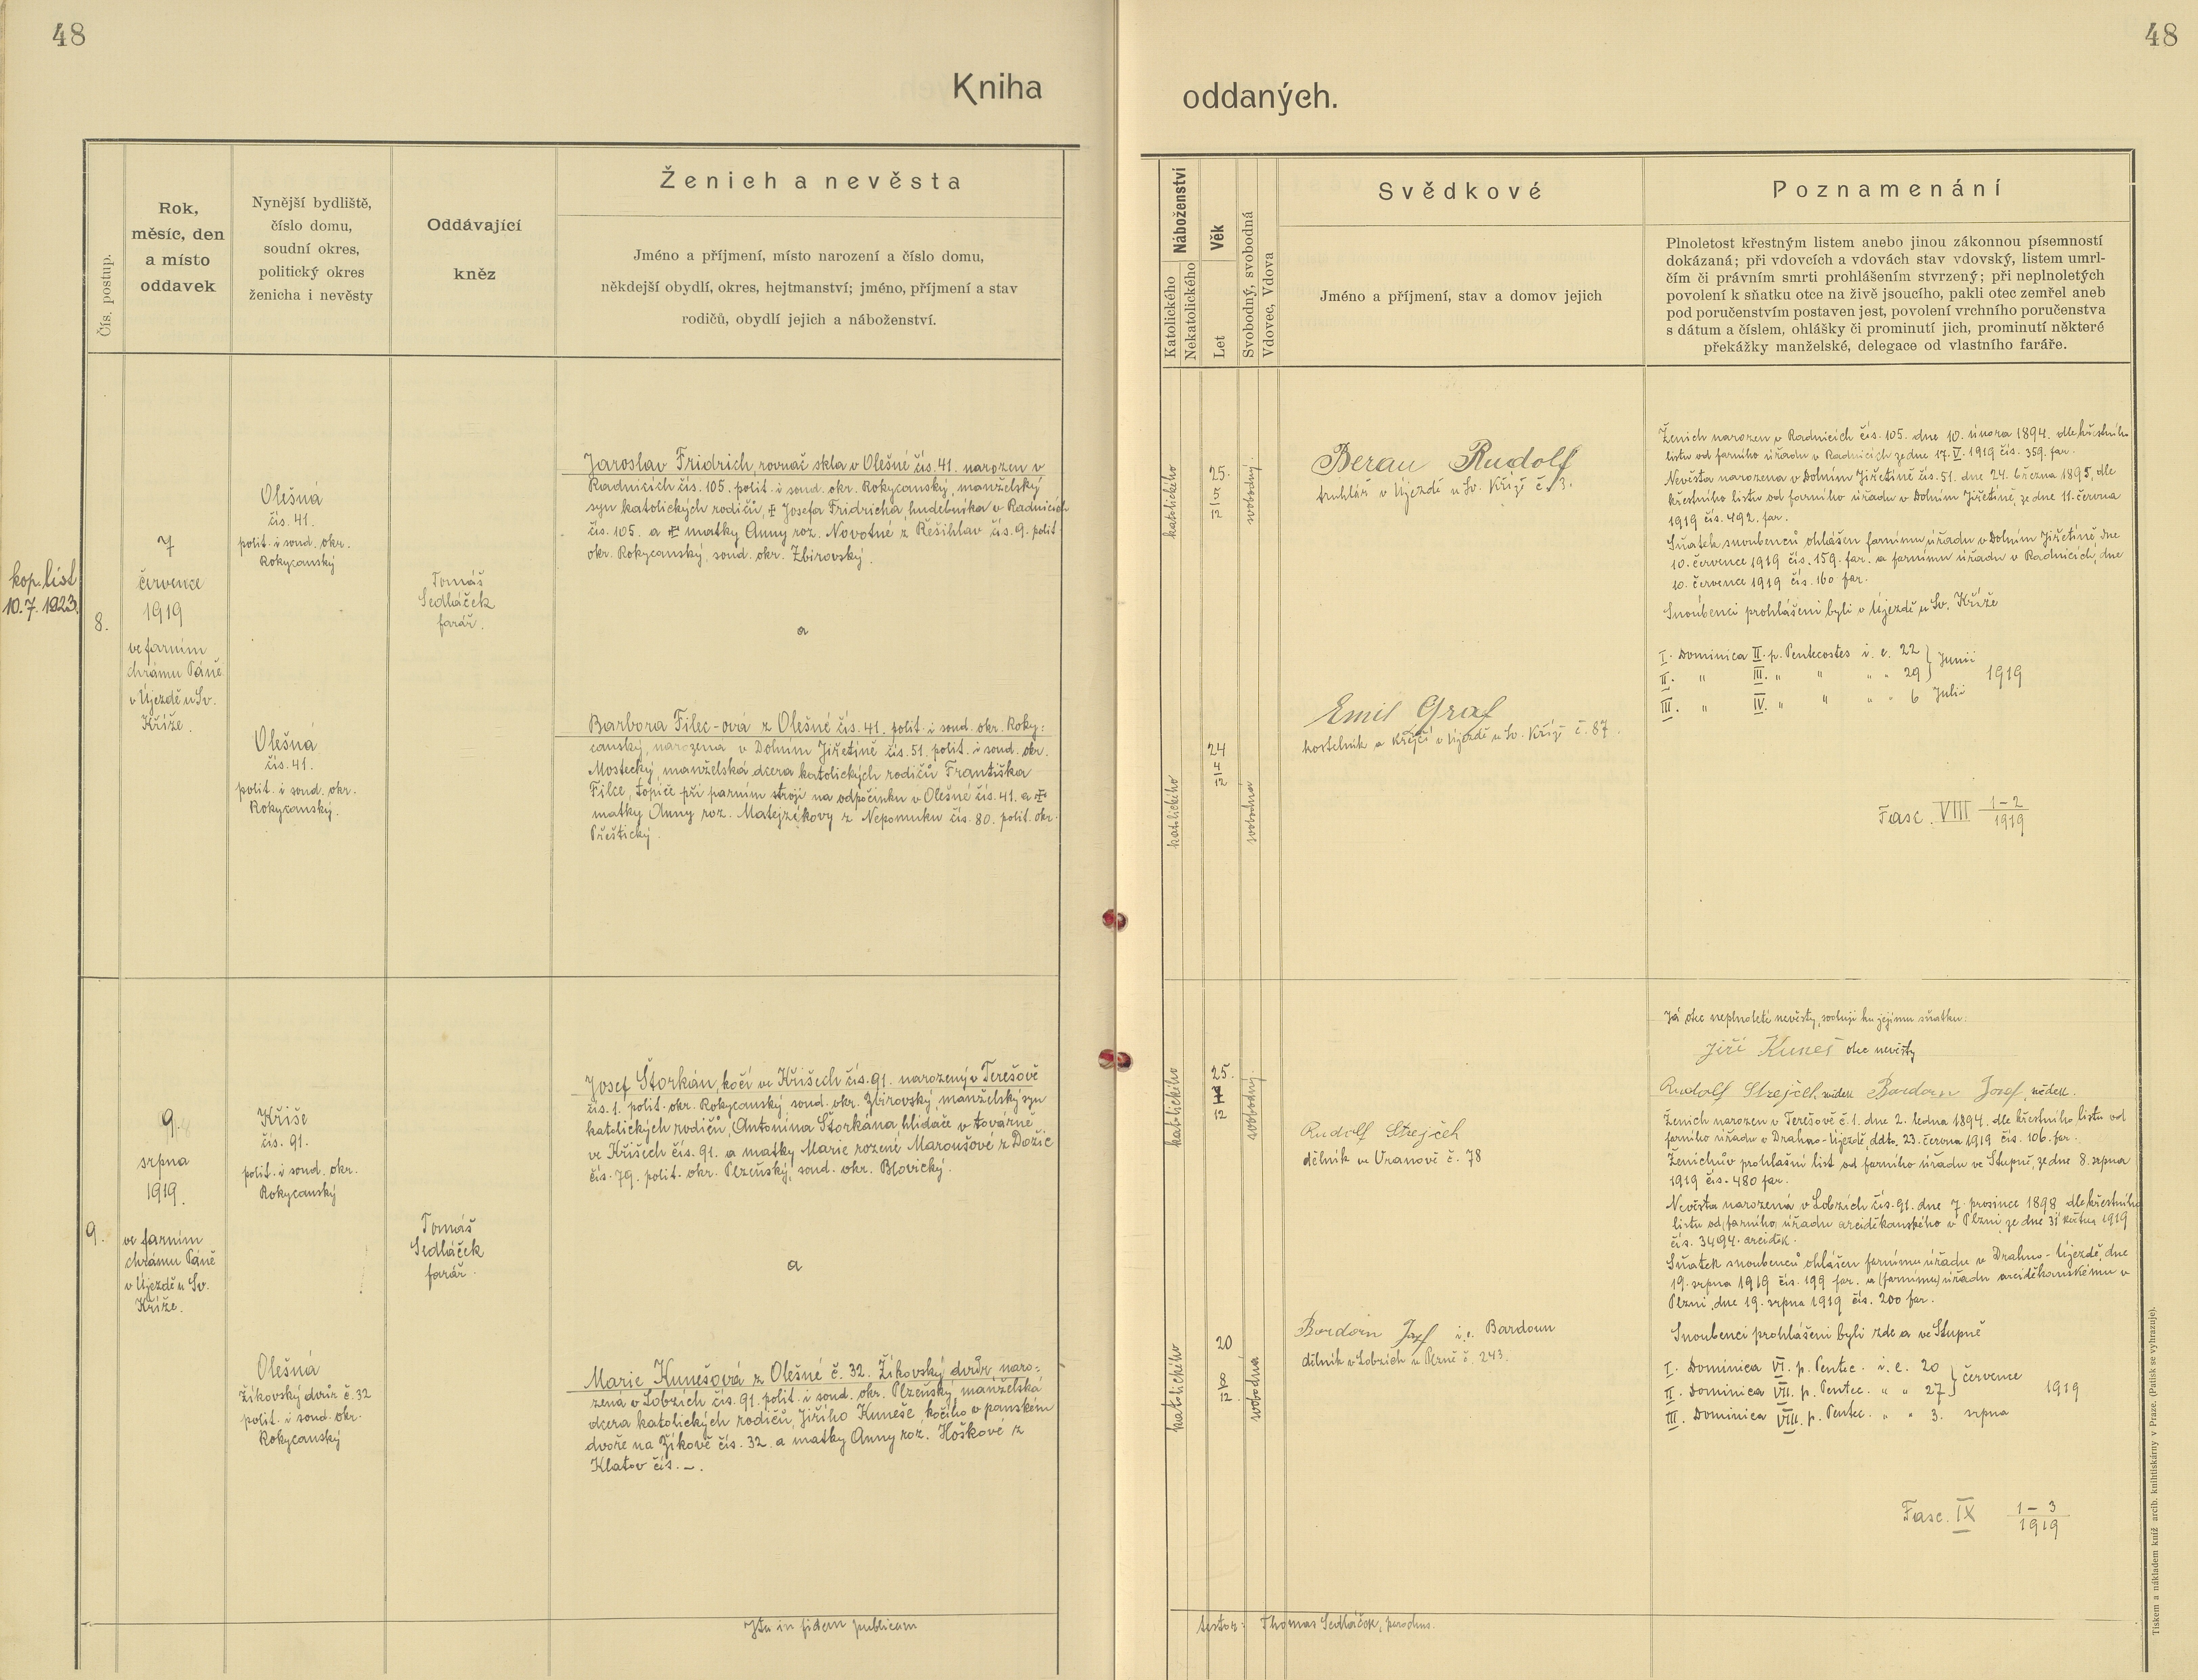 48
48
Kniha
oddaných.
Čís. postup.
Rok,
měsíc, den
a místo
oddavek
Nynější bydliště,
číslo domu,
soudní okres,
politický okres
ženicha i nevěsty
Oddávající
kněz
Ženich a nevěsta
Jméno a příjmení, místo narození a číslo domu,
někdejší obydlí, okres, hejtmanství; jméno, příjmení a stav
rodičů, obydlí jejich a náboženství.
Náboženství
Katolického
Nekatolického
Věk
Let
Svobodný, svobodná
Vdovec, Vdova
Svědkové
Jméno a příjmení, stav a domov jejich
Poznamenání
Plnoletost křestným listem anebo jinou zákonnou písemností
dokázaná; při vdovcích a vdovách stav vdovský, listem umrl-
čím či právním smrti prohlášením stvrzený; při neplnoletých
povolení k sňatku otce na živě jsoucího, pakli otec zemřel aneb
pod poručenstvím postaven jest, povolení vrchního poručenstva
s dátum a číslem, ohlášky či prominutí jich, prominutí některé
překážky manželské, delegace od vlastního faráře.
kop. list
10. 7. 1923.
8.
7
července
1919
ve farním
chrámu Páně
v Újezdě u Sv.
Kříže.
Olešná
čís. 41.
polit. i soud. okr.
Rokycanský
Olešná
čís. 41.
polit. i soud. okr.
Rokycanský.
Tomáš
Sedláček
farář.
Jaroslav Fridrich, rovnač skla v Olešné čís. 41. narozen v
Radnicích čís. 105. polit. i soud. okr. Rokycanský, manželský
syn katolických rodičů, † Josefa Fridricha, hudebníka v Radnicích
čís. 105. a † matky Anny roz. Novotné z Řešihlav čís. 9. polit
okr. Rokycanský, soud. okr. Zbirovský.
a
Barbora Filec-ová z Olešné čís. 41. polit. i soud. okr. Roky:
canský, narozena v Dolním Jiřetíně čís. 51. polit. i soud. okr.
Mostecký, manželská dcera katolických rodičů Františka
Filce, topiče při parním stroji na odpočinku v Olešné čís. 41. a †
matky Anny roz. Matejzíkovy z Nepomuku čís. 80. polit. okr.
Přeštický.
katolického
25.
12
svobodný.
katolického
24
12
svobodná
Beran Rudolf
truhlář v Újezdě u Sv. Kříže č. 3.
Emil Graf
kostelník a krejčí v Újezdě u Sv. Kříže č. 87.
Ženich narozen v Radnicích čís. 105. dne 10. února 1894. dle křestního
listu od farního úřadu v Radnicích ze dne 17. V. 1919 čís. 359. far.
Nevěsta narozena v Dolním Jiřetíně čís. 51. dne 24. března 1895, dle
křestního listu od farního úřadu v Dolním Jiřetíně, ze dne 11. června
1919 čís. 492. far.
Sňatek snoubenců ohlášen farnímu úřadu v Dolním Jiřetíně, dne
10. července 1919 čís. 159. far. a farnímu úřadu v Radnicích, dne
10. července 1919 čís. 160 far.
Snoubenci prohlášeni byli v Újezdě u Sv. Kříže
I. Dominica II. p. Pentecostes i. e. 22 } Junii
II. " III. " " " " 29 } 1919
III. " IV. " " " " 6 Julii
Fasc. VIII 1-2
1919
9.
9.
srpna
1919.
ve farním
chrámu Páně
v Újezdě u Sv.
Kříže.
Kříše
čís. 91.
polit. i soud. okr.
Rokycanský
Olešná
Žikovský dvůr č. 32
polit. i soud. okr.
Rokycanský
Tomáš
Sedláček
farář.
Josef Štorkán, kočí ve Kříšech čís. 91. narozený v Terešově
čís. 1. polit. okr. Rokycanský, soud. okr. Zbirovský, manželský syn
katolických rodičů, Antonína Štorkána, hlídače v továrně
ve Kříšech čís. 91. a matky Marie rozené Maroušové z Dožic
čís. 79. polit. okr. Plzeňský, soud. okr. Blovický.
a
Marie Kunešová z Olešné č. 32. Žikovský dvůr, naro:
zená v Lobzích čís. 91. polit. i soud. okr. Plzeňský, manželská
dcera katolických rodičů, Jiřího Kuneše, kočího v panském
dvoře na Žikově čís. 32. a matky Anny roz. Hoškové z
Klatov čís. –.
katolického
25.
12
svobodný.
katolického
20
12
svobodna
Rudolf Strejček
dělník ve Vranově č. 78
Bardoin Josef i. e. Bardoun
dělník v Lobzích u Plzně č. 243.
Já otec neplnoleté nevěsty, svoluji ku jejímu sňatku:
Jiří Kuneš otec nevěsty
Rudolf Strejček, svědek Bardoun Josef, svědek.
Ženich narozen v Terešově č. 1. dne 2. ledna 1894. dle křestního listu od
farního úřadu v Drahno-Újezdě, ddto. 23. června 1919 čís. 106. far.
Ženichův prohlašní list od farního úřadu ve Stupně, ze dne 8. srpna
1919 čís. 480 far.
Nevěsta narozená v Lobzích čís. 91. dne 7. prosince 1898 dle křestního
listu od farního úřadu arciděkanského v Plzni ze dne 31 května 1919
čís. 3494. arciděk.
Sňatek snoubenců ohlášen farnímu úřadu v Drahno-Újezdě, dne
19. srpna 1919 čís. 199 far. a (farnímu) úřadu arciděkanskému v
Plzni, dne 19. srpna 1919 čís. 200 far.
Snoubenci prohlášeni byli zde a ve Stupně
I. Dominica VI. p. Pentec. i. e. 20 } července
II. Dominica VII. p. Pentec. " " 27 } 1919
III. Dominica VIII. p. Pentec. " " 3. srpna
Fasc. IX 1-3
1919
Ita in fidem publicam
testor: Thomas Sedláček, parochus.
Tiskem a nákladem kníž. arcib. knihtiskárny v Praze. (Patisk se vyhrazuje).